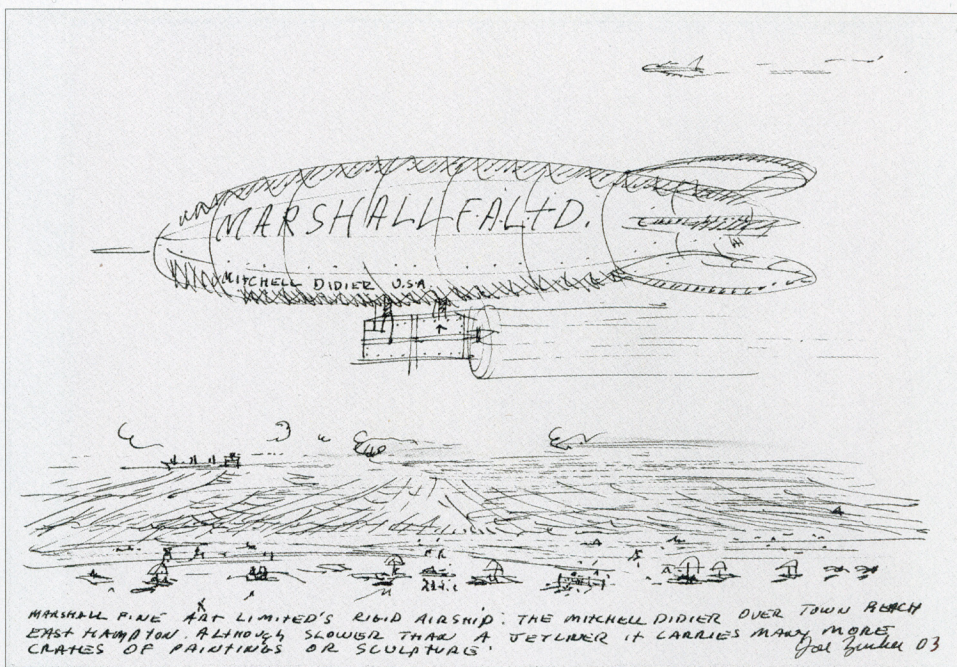 MARSHALL F.A. LTD.
MITCHELL DIDIER U.S.A.
MARSHALL FINE ART LIMITED'S RIGID AIRSHIP. THE MITCHELL DIDIER OVER TOWN BEACH
EAST HAMPTON. ALTHOUGH SLOWER THAN A JETLINER IT CARRIES MANY MORE
CRATES OF PAINTINGS OR SCULPTURE.
Joe Zucker 03